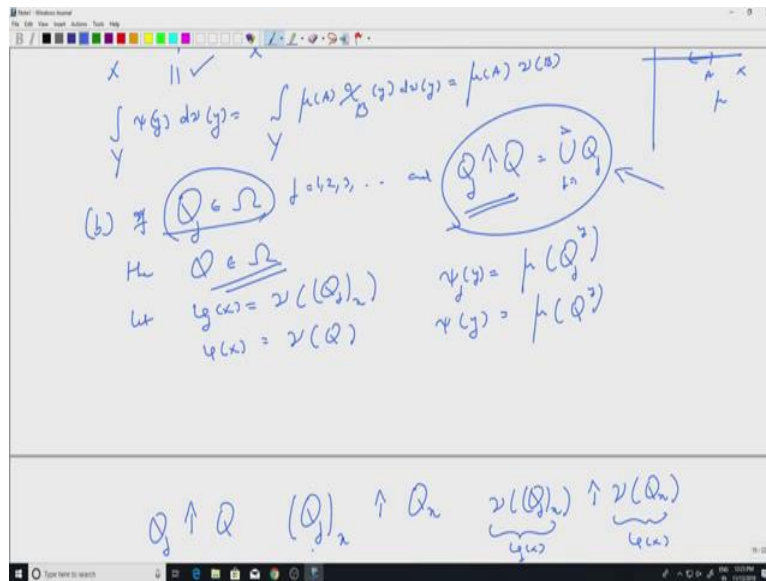 Note1 - Windows Journal
File Edit View Insert Actions Tools Help
X || ✓ X
∫_Y ψ(y) dν(y) = ∫_Y μ(A) χ_B (y) dν(y) = μ(A) ν(B)
A X
μ
(b) If Q_j ∈ Ω j = 1, 2, 3, ... and Q_j ↑ Q = ∪_{j=1}^∞ Q_j
then Q ∈ Ω
let φ_j(x) = ν((Q_j)_x) ψ_j(y) = μ(Q_j^y)
φ(x) = ν(Q) ψ(y) = μ(Q^y)
Q_j ↑ Q (Q_j)_x ↑ Q_x ν((Q_j)_x) ↑ ν(Q_x)
φ_j(x) φ(x)
Type here to search